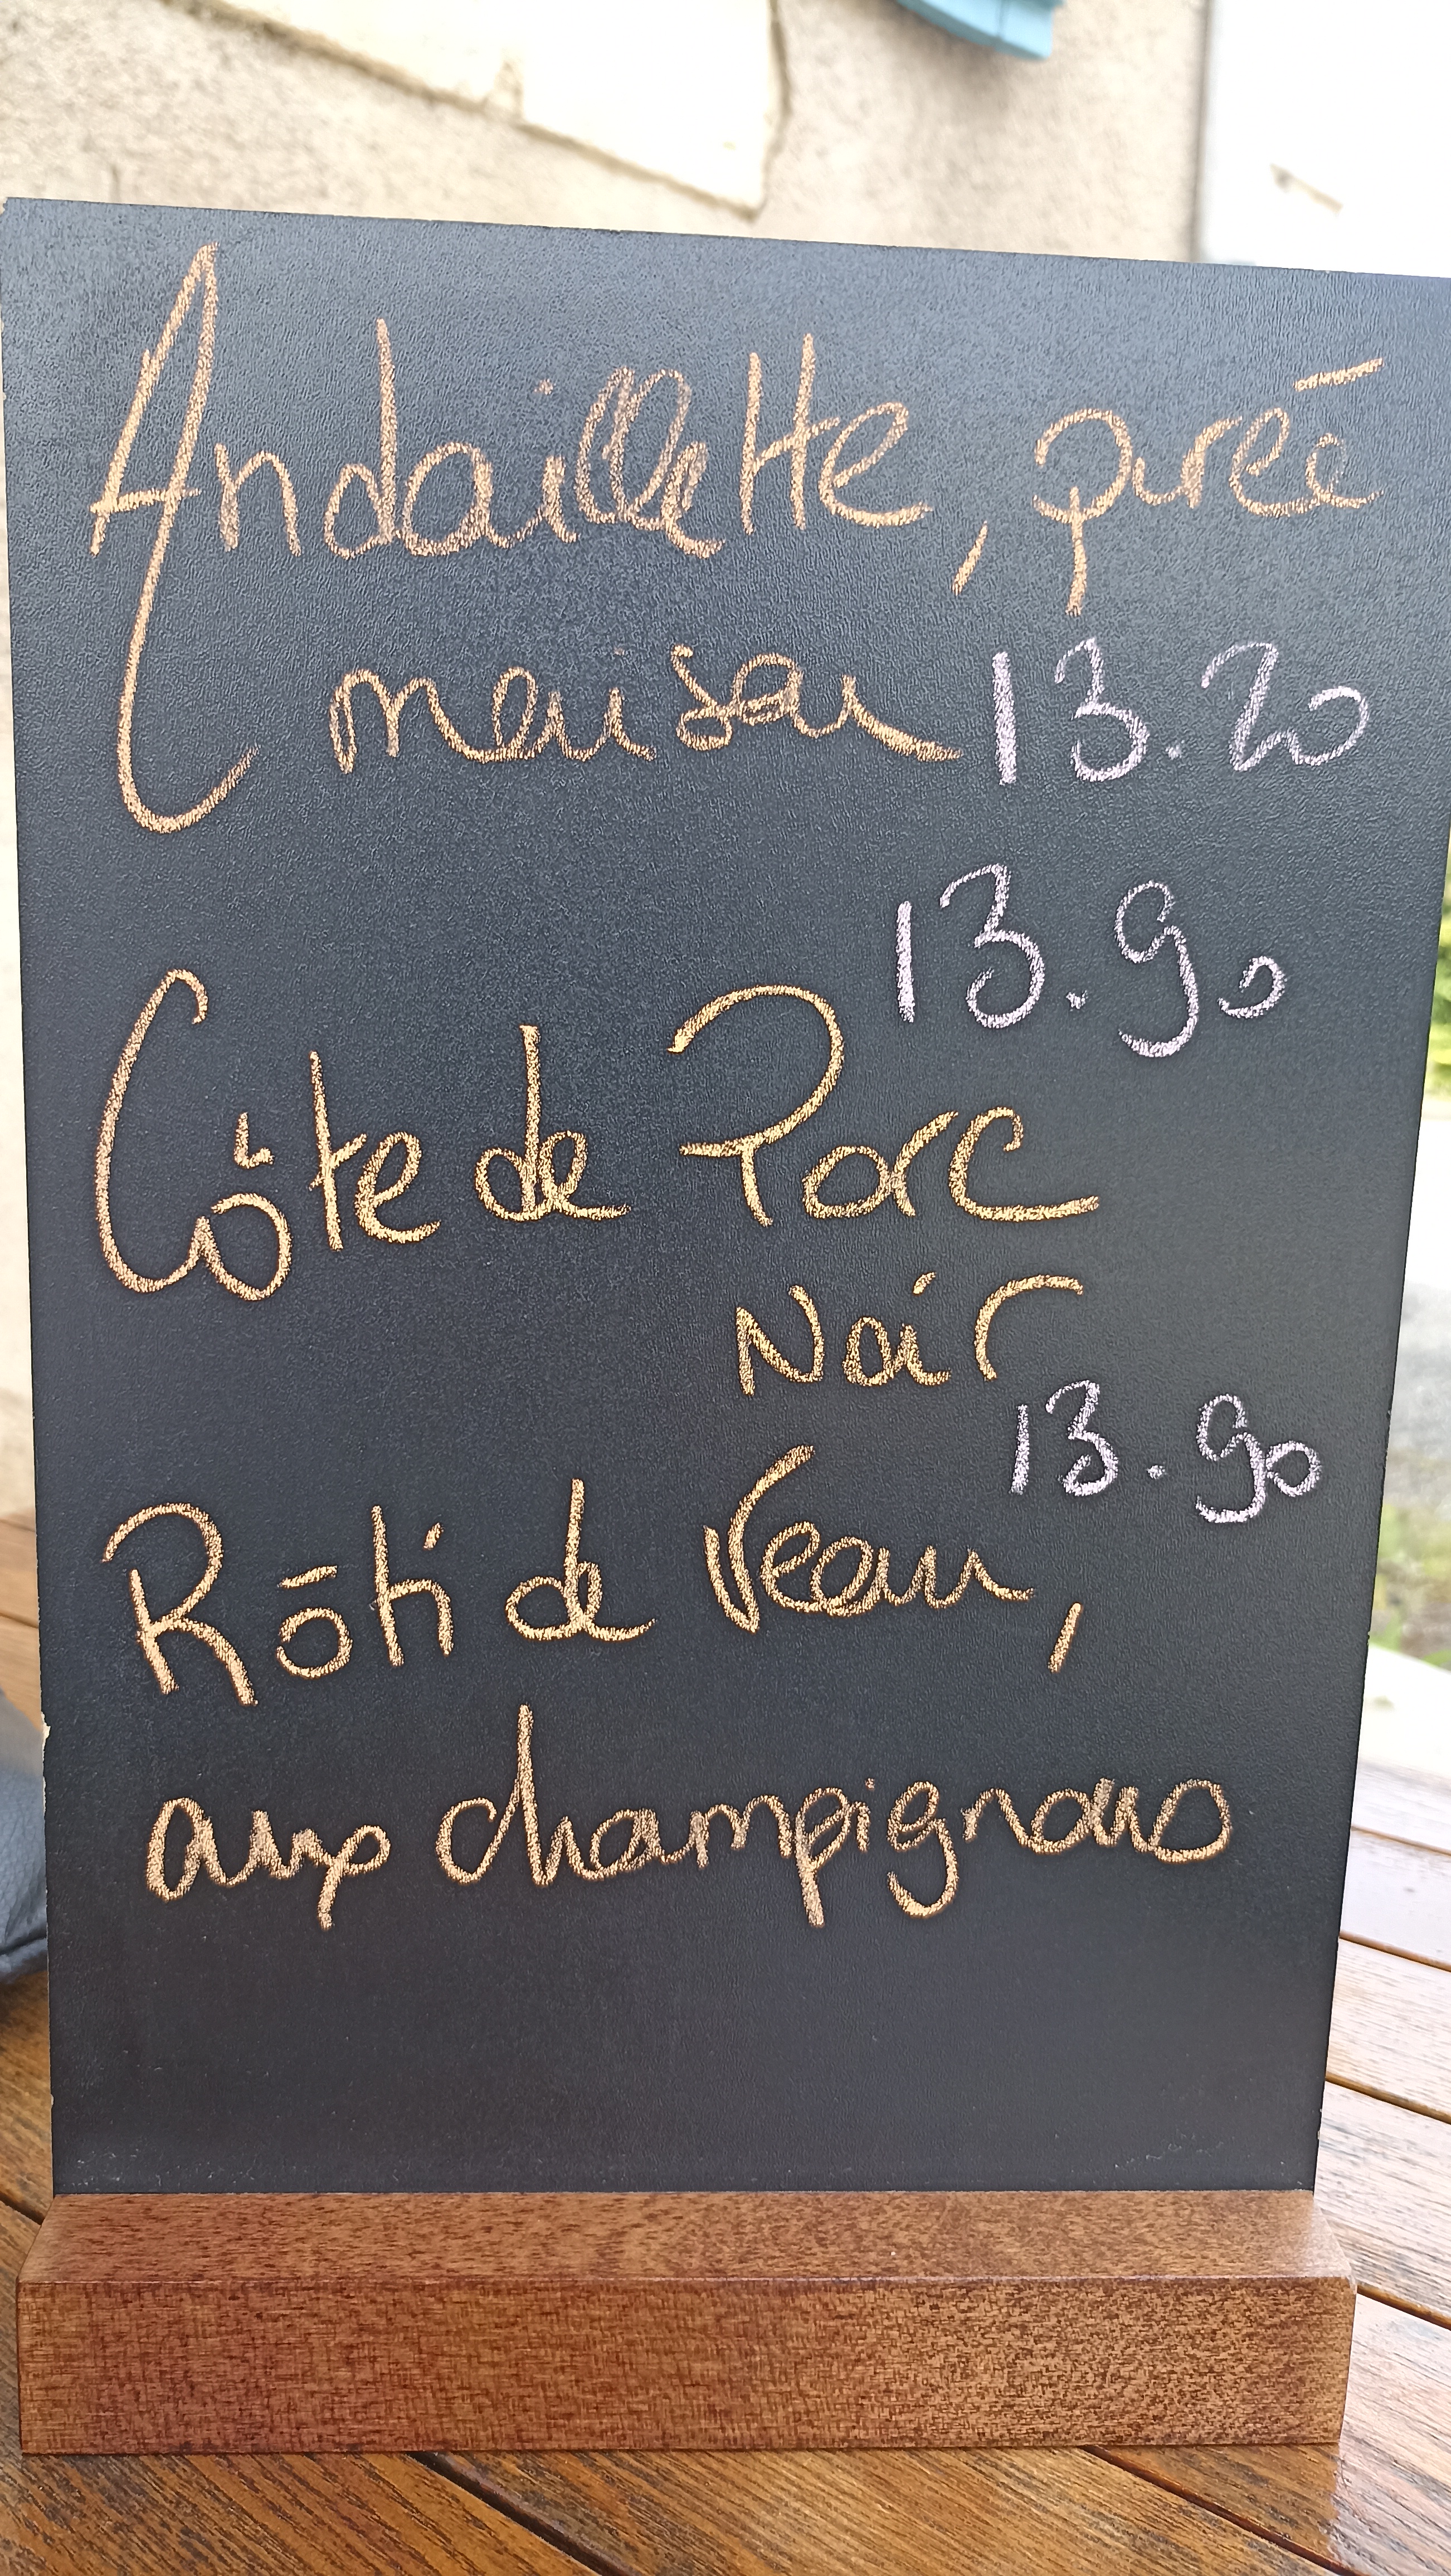 Andouillette, purée
maison 13.20
13.90
Côte de Porc
Noir
13.90
Rôti de Veau,
aux champignons